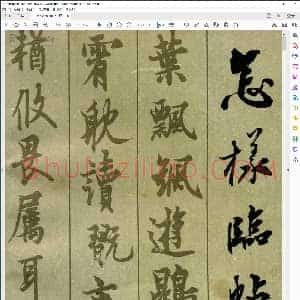 怎樣臨帖
葉飄颻遊鵾
霄耽讀翫市
猶攸畏屬耳
shufaziliao.com